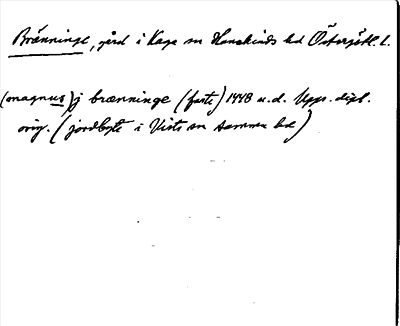 Bränninge, gård i Kaga sn Hanekinds hd Östergötl. l.
(magnus) j brænninge (farte) 1448 u.d. Upps. dipl.
orig. (jordbyte i Vists sn samma hd)